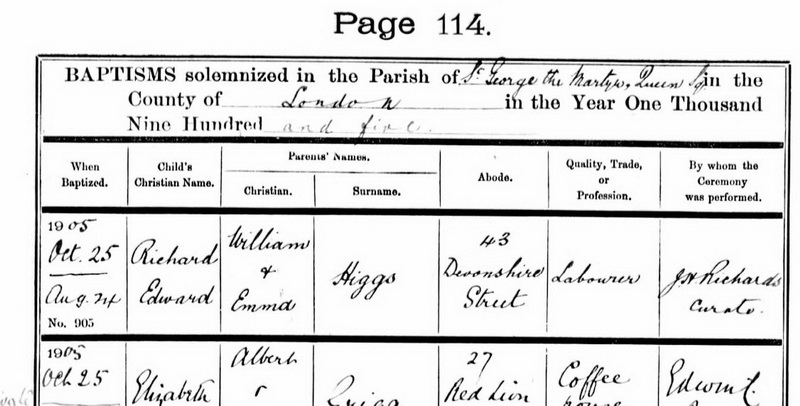 Page 114.
BAPTISMS solemnized in the Parish of St. George the Martyr, Queen Sq in the
County of London in the Year One Thousand
Nine Hundred and five.
When Baptized.
Child's Christian Name.
Parents' Names.
Christian.
Surname.
Abode.
Quality, Trade, or Profession.
By whom the Ceremony was performed.
1905
Oct. 25
Aug. 24
No. 905
Richard
Edward
William
&
Emma
Higgs
43
Devonshire
Street
Labourer
JH Richards
Curate.
1905
Oct. 25
Elizabeth
Albert
27
Red Lion
Coffee